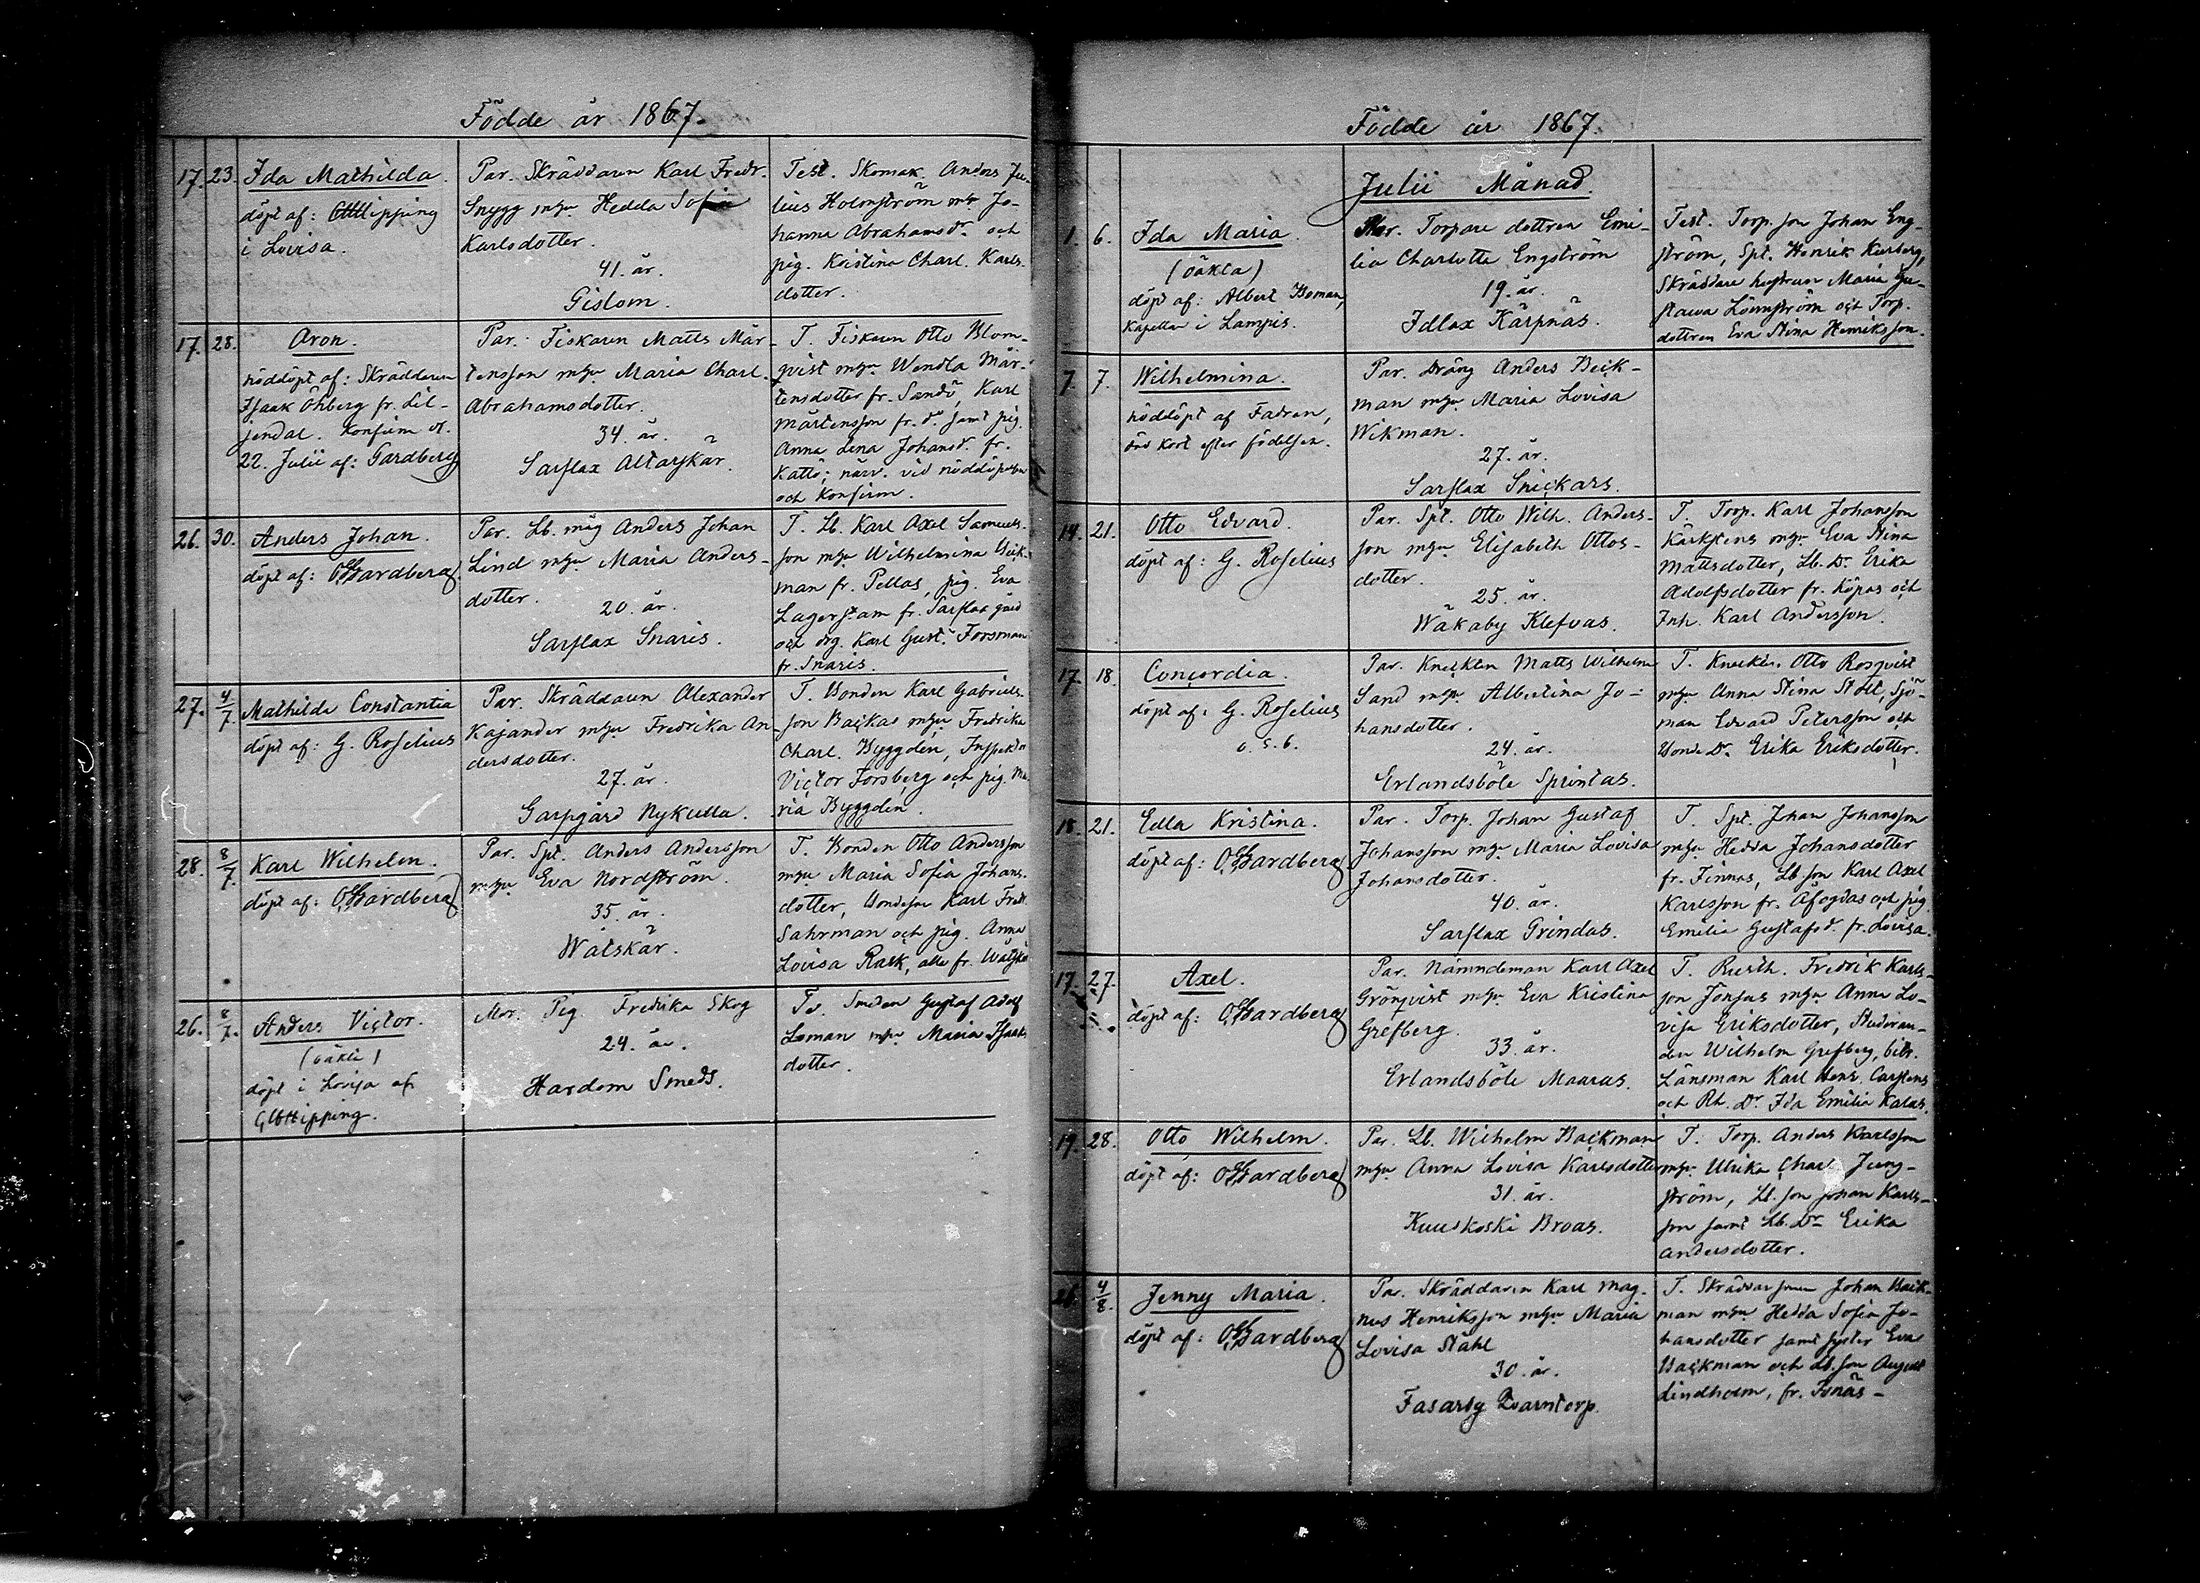 Födde år 1867.
17. 23. Ida Mathilda.
döpt af: Hipping
i Lovisa.
Par. Skräddaren Karl Fredr.
Snygg m hu Hedda Sofia
Karlsdotter.
41. år.
Gislom.
Test. Skomak. Anders Ju-
lius Holmström m hu Jo-
hanna Abrahamsdr. och
pig. Kristina Charl. Karls-
dotter.
17. 28. Aron.
nöddöpt af: Skräddaren
Isaak Öhberg fr. Lil-
jendal. Konfirm. d.
22. Julii af: Gardberg
Par. Fiskaren Matts Mår-
tensson m hu Maria Charl.
Abrahamsdotter.
34. år.
Sarflax Altarskär.
T. Fiskaren Otto Blom-
qvist m hu Wendla Mår-
tensdotter fr. Sandö, Karl
Mårtensson fr. do. samt pig.
Anna Lena Johansdr. fr.
Kattö; närv. vid nöddöpelsen
och Konfirm.
26. 30. Anders Johan.
döpt af: O. Gardberg.
Par. Lb. måg Anders Johan
Lind m hu Maria Anders-
dotter.
20. år.
Sarflax Snaris.
T. Lb. Karl Axel Samuels-
son m hu Wilhelmina Bäck-
man fr. Pellas, pig. Eva
Lagerstam fr. Sarflax gård
och drg. Karl Gust. Forsman
fr. Snaris.
27. 4/7. Mathilda Constantia
döpt af: G. Roselius
Par. Skräddaren Alexander
Kajander m hu Fredrika An-
dersdotter.
27. år.
Garpgård Nykulla.
T. Bonden Karl Gabriels-
son Backas m hu Fredrika
Charl. Byggdén, Inspektor
Victor Forsberg och pig. Ma-
ria Byggdén.
28. 8/7. Karl Wilhelm.
döpt af: O. Gardberg
Par. Spt. Anders Andersson
m hu Eva Nordström.
35. år.
Wåtskär.
T. Bonden Otto Andersson
m hu Maria Sofia Johans-
dotter, Bondeson Karl Fredr.
Sahrman och pig. Anna
Lovisa Rask, alla fr. Wåtskär
26. 8/7. Anders Victor.
(oäkta)
döpt i Lovisa af
Hipping.
Mor. Pig. Fredrika Skog
24. år.
Hardom Smeds.
T. Smeden Gustaf Adolf
Loman m hu Maria Isaks-
dotter.
Födde år 1867.
Julii Månad.
1. 6. Ida Maria.
(oäkta)
döpt af: Albert Boman,
Kapellan i Lampis.
Mor. Torpare dottren Emi-
lia Charlotta Engström
19. år.
Idlax Kärpnäs.
Test. Torp. son Johan Eng-
ström, Spt. Henrik Kurberg,
Skräddare hustrun Maria Gu-
stava Lönnström och Torp.
dottren Eva Stina Henriksson.
7. 7. Wilhelmina.
nöddöpt af Fadren,
död kort efter födelsen.
Par. Dräng Anders Beck-
man m hu Maria Lovisa
Wikman.
27. år.
Sarflax Snickars.
14. 21. Otto Edvard.
döpt af: G. Roselius
Par. Spt. Otto Wilh. Anders-
son m hu Elisabeth Ottos-
dotter.
25. år.
Wåkaby Klefvas.
T. Torp. Karl Johansson
Karstens m hu Eva Stina
Mattsdotter, Lb. Dr. Erika
Adolfsdotter fr. Köpas och
Inh. Karl Andersson.
17. 18. Concordia.
döpt af: G. Roselius
Par. Knekten Matts Wilhelm
Sand m hu Albertina Jo-
hansdotter.
24. år.
Erlandsböle Sprintas.
T. Knekten Otto Rosqvist
m hu Anna Stina Stolt, Sjö-
man Edvard Petersson och
Bonde Dr. Erika Eriksdotter.
18. 21. Edla Kristina.
döpt af: O. Gardberg
Par. Torp. Johan Gustaf
Johansson m hu Maria Lovisa
Johansdotter.
40. år.
Sarflax Grindas.
T. Spt. Johan Johansson
m hu Hedda Johansdotter
fr. Finnas, Lb son Karl Axel
Karlsson fr. Åfogdas och pig.
Emilia Gustafsdr. fr. Lovisa.
17. 27. Axel.
döpt af: O. Gardberg
Par. Nämndeman Karl Axel
Grönqvist m hu Eva Kristina
Grefberg.
33. år.
Erlandsböle Maaras.
T. Rusth. Fredrik Karls-
son Jönsas m hu Anna Lo-
visa Eriksdotter, Studeran-
den Wilhelm Grefberg, bitr.
Länsman Karl Henr. Carstens
och Rh. Dr. Ida Emilia Kalas.
19. 28. Otto Wilhelm.
döpt af: O. Gardberg
Par. Lb. Wilhelm Backman
m hu Anna Lovisa Karlsdotter
31. år.
Kuuskoski Broas.
T. Torp. Anders Karlsson
m hu Ulrika Charl. Jung-
ström, Lb. son Johan Karls-
son samt Lb. Dr. Erika
Andersdotter.
26. 4/8. Jenny Maria.
döpt af: O. Gardberg
Par. Skräddaren Karl Mag-
nus Henriksson m hu Maria
Lovisa Ståhl
30. år.
Fasarby Qvarntorp.
T. Skräddaren Johan Back-
man m hu Hedda Sofia Jo-
hansdotter samt syster Eva
Backman och Lb. son August
Lindholm, fr. Isnäs-